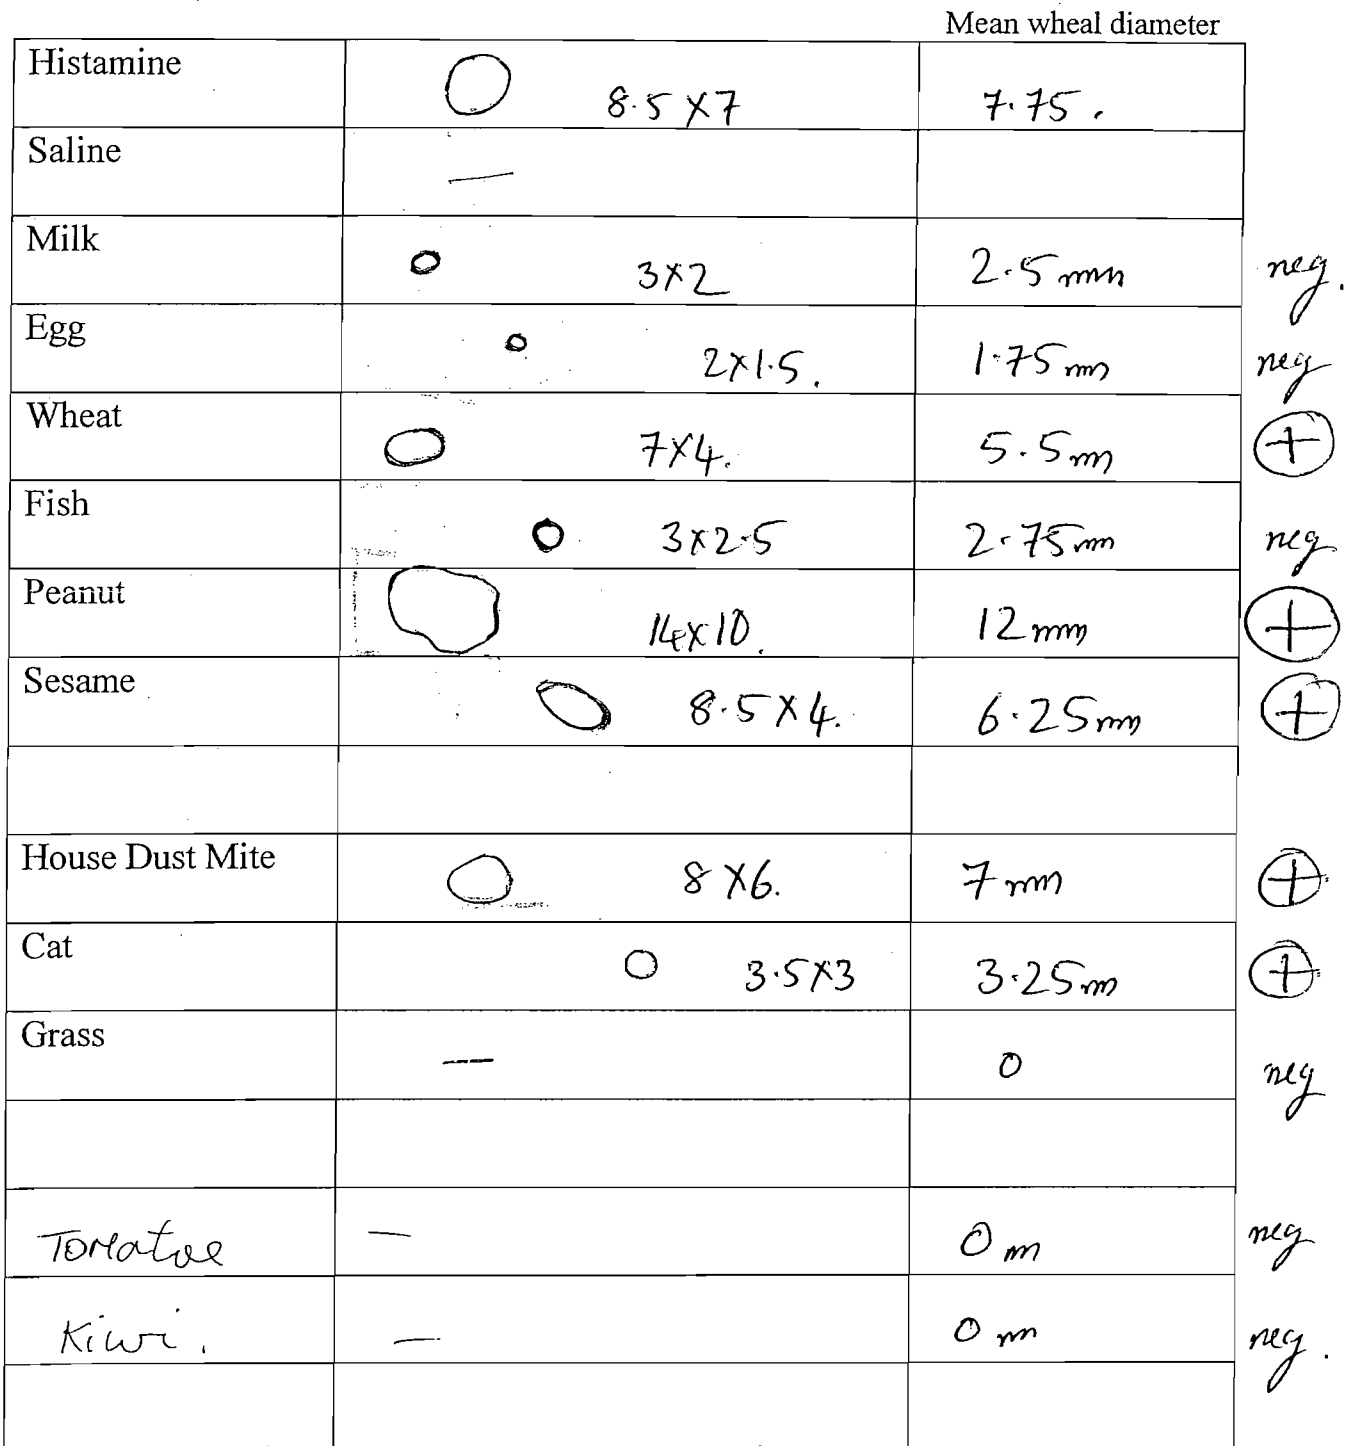 Mean wheal diameter
Histamine 8.5 X 7 7.75.
Saline —
Milk 3X2 2.5 mm neg.
Egg 2X1.5. 1.75 mm neg
Wheat 7X4. 5.5 mm +
Fish 3x2.5 2.75 mm neg
Peanut 14x10. 12 mm +
Sesame 8.5 X 4. 6.25 mm +
House Dust Mite 8 X6. 7 mm +
Cat 3.5X3 3.25 m +
Grass --- 0 neg
Tomatoe — 0 m neg
Kiwi. — 0 m neg.